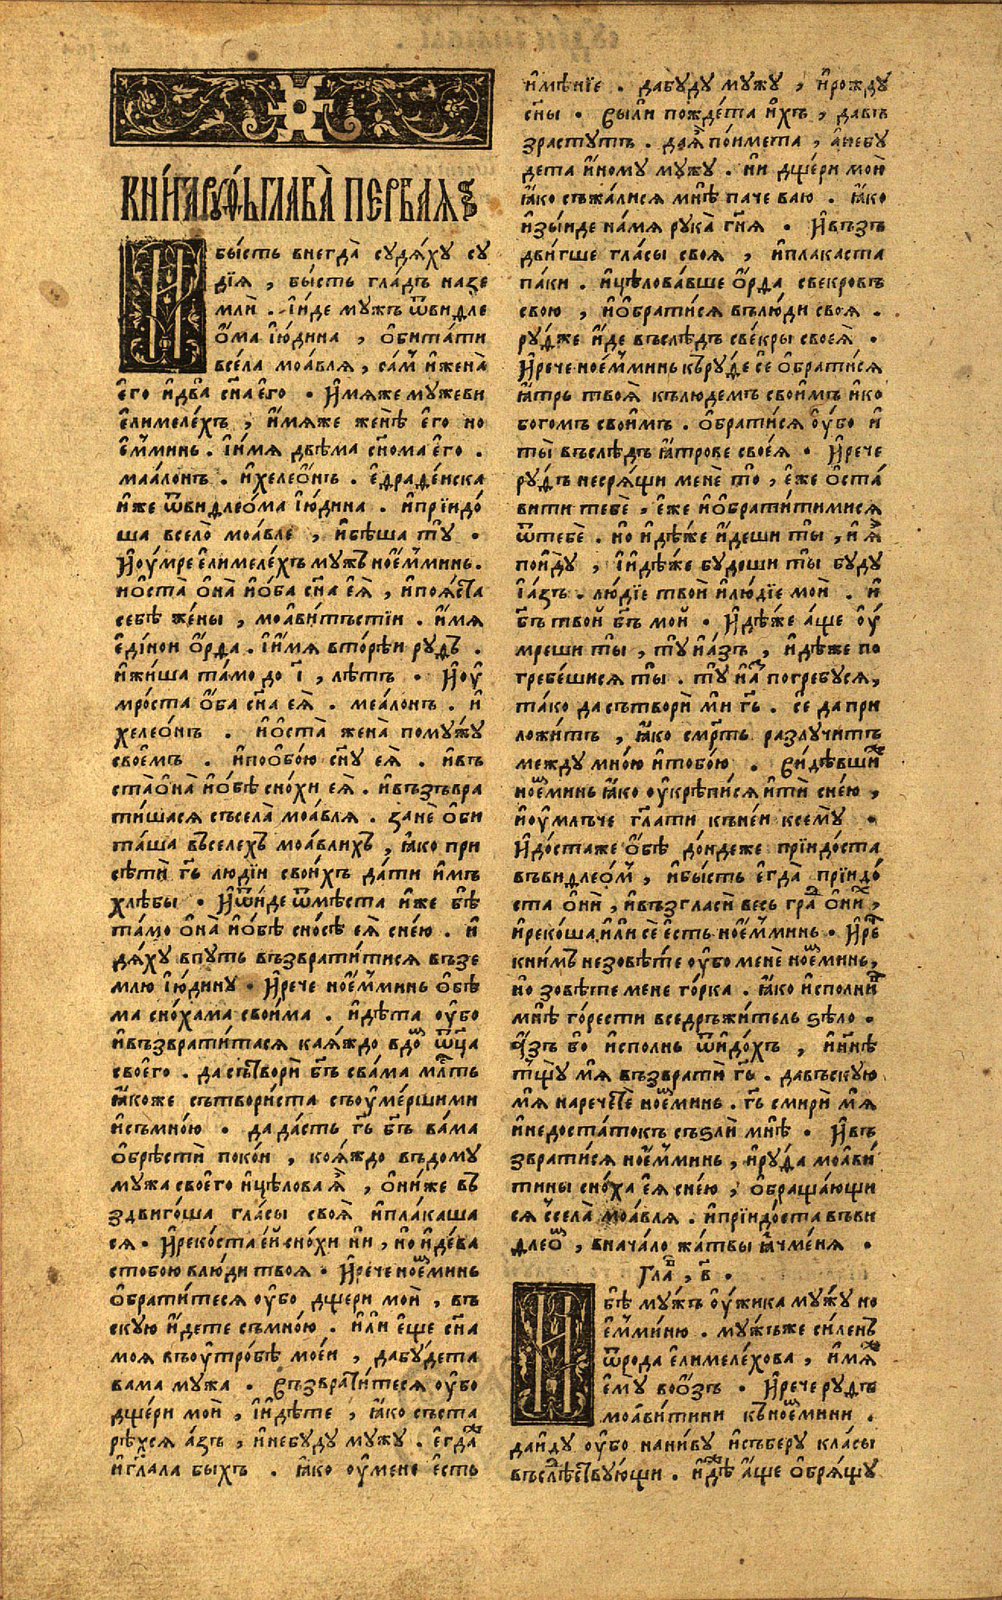 КНИ́ГА РУ́ѲЬ ГЛАВА̀ ПЕ́РВАЯ
И бы́сть внегда̀ судя́ху су
дїя̀, бы́сть гла́дъназе
млѝ. и҆и҆де му́жъ ѿвиѳле
ѡ҆ма і҆ю́дина, ѡ҆бита́ти
всѐла моа́вля, са́м и҆жена̀
е҆го̀ и҆два̀ сн҃а е҆го̀. И҆мя́же му́жеви
е҆лимеле́хъ, и҆мя́же жен꙼ѣ е҆го̀ но
е҆ммінь. і҆и҆мя двѣ́ма сн҃ома е҆го̀.
маало́нъ. и҆хелео́нъ. е҆ѳраѳе́иска
и҆́же ѿвиѳлео́ма і҆ю́дина. и҆прїидо́
ша всело̀ моа́вле, и҆бѣ́ша тꙋ̀.
И҆ѹ҆мре е҆лимеле́хъ му́жъ ное҆мминь.
и҆ѡ҆ста̀ ѡ҆на̀ и҆ѡ҆́ба сн҃а е҆я̀, и҆поя́ста
себѣ̀ же́ны, моави́тъстїи. и҆мя
е҆ди́нои ѡ҆рѳа. і҆и҆мя вторѣ́и руѳь.
и҆жи́ша та́мо до і҃, лѣ́тъ. И҆ѹ҆
мро́ста ѡ҆́ба сн҃а ея̀. меа́лонъ. и҆
хелео́нъ. и҆ѡ҆ста̀ жена̀ пому́жу
свое́мъ. и҆пообо́ю сн҃у ея̀. и҆въ
ста̀ ѡ҆на̀ и҆ѡ҆бѣ сно́хи ея̀. и҆възъвра
ти́шася съсела̀ моа́вля. занѐ ѡ҆би
та́ша въселехъ моа́влихъ, ꙗ҆́ко при
сѣтѝ гь҃ лю́дїи свои́хъ да́ти и҆мъ
хлѣ́бы. И҆ѿи́де ѿмѣ́ста и҆́же бѣ̀
та́мо ѡ҆на̀ и҆ѡ҆бѣ сно́сѣ ея̀ сне́ю. и҆
дя́ху впу́ть възврати́тися взе
млю і҆ю́дину. И҆рече ное҆мминь ѡ҆бѣ
ма сно́хама свои́ма. и҆дѣ́та ѹ҆бо
и҆възврати́тася ка́яждо вдо́м ѿц҃а
своего̀. да сътвори́ бг҃ъ сва́ма мл҃ть
ꙗ҆́коже сътвори́ста съѹ҆ме́ршими
и҆съмно́ю. да да́сть гь҃ бг҃ъ ва́ма
ѡ҆брѣстѝ поко́и, ко́яждо въдому̀
му́жа своего̀ и҆цѣлова́ я҆̀, ѡ҆ни́же въ
здвиго́ша гла́сы своя̀ и҆пла́каша
ся. И҆реко́ста е҆́и сно́хи нѝ, но и҆де́ва
стобо́ю влю́ди твоя̀. И҆рече ное҆минь
ѡ҆брати́теся ѹ҆бо дще́ри моѝ, въ
скую и҆́дете съмно́ю. и҆ли е҆ще сн҃а
моя въѹ҆тро́бѣ мое́и, дабу́дета
вама му́жа. Възврати́теся ѹ҆бо
дще́ри моѝ, і҆и҆дѣ́те, ꙗ҆́ко съста
рѣ́хся а҆́зъ, и҆небу́ду му́жу. е҆гда́
и҆гл҃ала быхъ. ꙗ҆́ко ѹ҆мене е҆́сть
и҆мѣ́нїе. дабу́ду му́жу, и҆рожду
сн҃ы. Е҆ы́ли пожде́та и҆́хъ, давъ
зрасту́тъ. дая҆̀ пои́мета, а҆небу
дета и҆́ному му́жу. нѝ дще́ри моѝ
ꙗ҆́ко съжа́лися мнѣ̀ паче ваю. ꙗ҆́ко
и҆зы́иде на́мя рука̀ гн҃я. И҆възъ
дви́гше гла́сы своя, и҆пла́каста
паки. и҆цѣлова́вше ѡ҆́рѳа свекро́въ
свою, и҆ѡ҆брати́ся въ лю́ди своя.
руѳ́же и҆́де въслѣ́дъ све́кры своея̀.
И҆рече ное҆мминь къру́ѳе се ѡ҆брати́ся
ꙗ҆́трь твоя̀ клю́демъ свои́мъ и҆ко
богомъ свои́мъ. ѡ҆брати́ся ѹ҆бо и҆
ты̀ въслѣ́дъ ꙗ҆тро́ве свое́я. И҆рече
ру́ѳь несря́щи менѐ то̀, е҆́же ѡ҆ста́
вити тебѐ, е҆́же и҆ѡ҆брати́тимися
ѿтебѐ. но и҆дѣ́же и҆́деши ты̀, и҆ я҆́
поиду, і҆и҆дѣ́же бу́деши ты̀ буду
і҆а́зъ. лю́дїе твоѝ и҆лю́дїе моѝ. и҆
бг҃ъ твои бг҃ъ мои. И҆дѣ́же а҆ще ѹ҆́
мреши ты̀, ту̀ и҆а́зъ, и҆дѣ́же по
гребе́шися ты̀. ту̀ и҆а҆́з погребуся,
та́ко да сътворѝ ми гь҃. се да при
ложи́тъ, ꙗ҆́ко сме́рть разлучи́тъ
между мно́ю и҆тобо́ю. Ви́дѣвши
ное҆минь ꙗ҆́ко ѹ҆крѣпи́ся и҆тѝ сне́ю,
и҆ѹ҆млъче гл҃ати кънеи ксему.
И҆до́стаже ѡ҆бѣ до́ндеже прїидо́ста
въвиѳлео́м, и҆бы́сть е҆гда̀ прїидо́
ста ѡ҆нѝ, и҆възгласѝ весь гра́д ѡ҆нѝ,
и҆реко́ша, и҆́ли сѐ е҆сть ное҆мминь. И҆рече
кни́мъ незовѣ́те ѹ҆бо менѐ ное҆минь,
но зовѣ́те мене го́рка. ꙗ҆́ко и҆спо́лни
мнѣ̀ го́рести вседръжи́тель ѕѣло.
А҆зъ бо и҆спо́лнь ѿидо́хъ, и҆нн҃ѣ
тщ҃у мя възвратѝ гь҃. давъскую
мя нарече́те ное҆минь. гь҃ смирѝ мя
и҆недоста́токъ съѕлѝ мнѣ̀. И҆въ
зврати́ся ное҆мминь, и҆ру́ѳа моави́
тины сноха̀ е҆я сне́ю, ѡ҆браща́ющи
ся ссела̀ моа́вля. и҆прїидо́ста въви
ѳлео́м, внача́ло жа́твы ꙗ҆чме́ня.
Гла́в, в҃.
И бѣ̀ му́жъ ѹ҆́жика му́жу но
е҆мми́ню. му́жьже си́ленъ
ѿрода е҆лимеле́хова, и҆мя́ж
е҆му воо́зъ. И҆рече ру́ѳь
моави́тини къное҆мини.
даиду ѹ҆бо нани́ву и҆съберу кла́сы
въслѣ́дствующи. и҆дѣ́же а҆́ще ѡ҆бря́щу